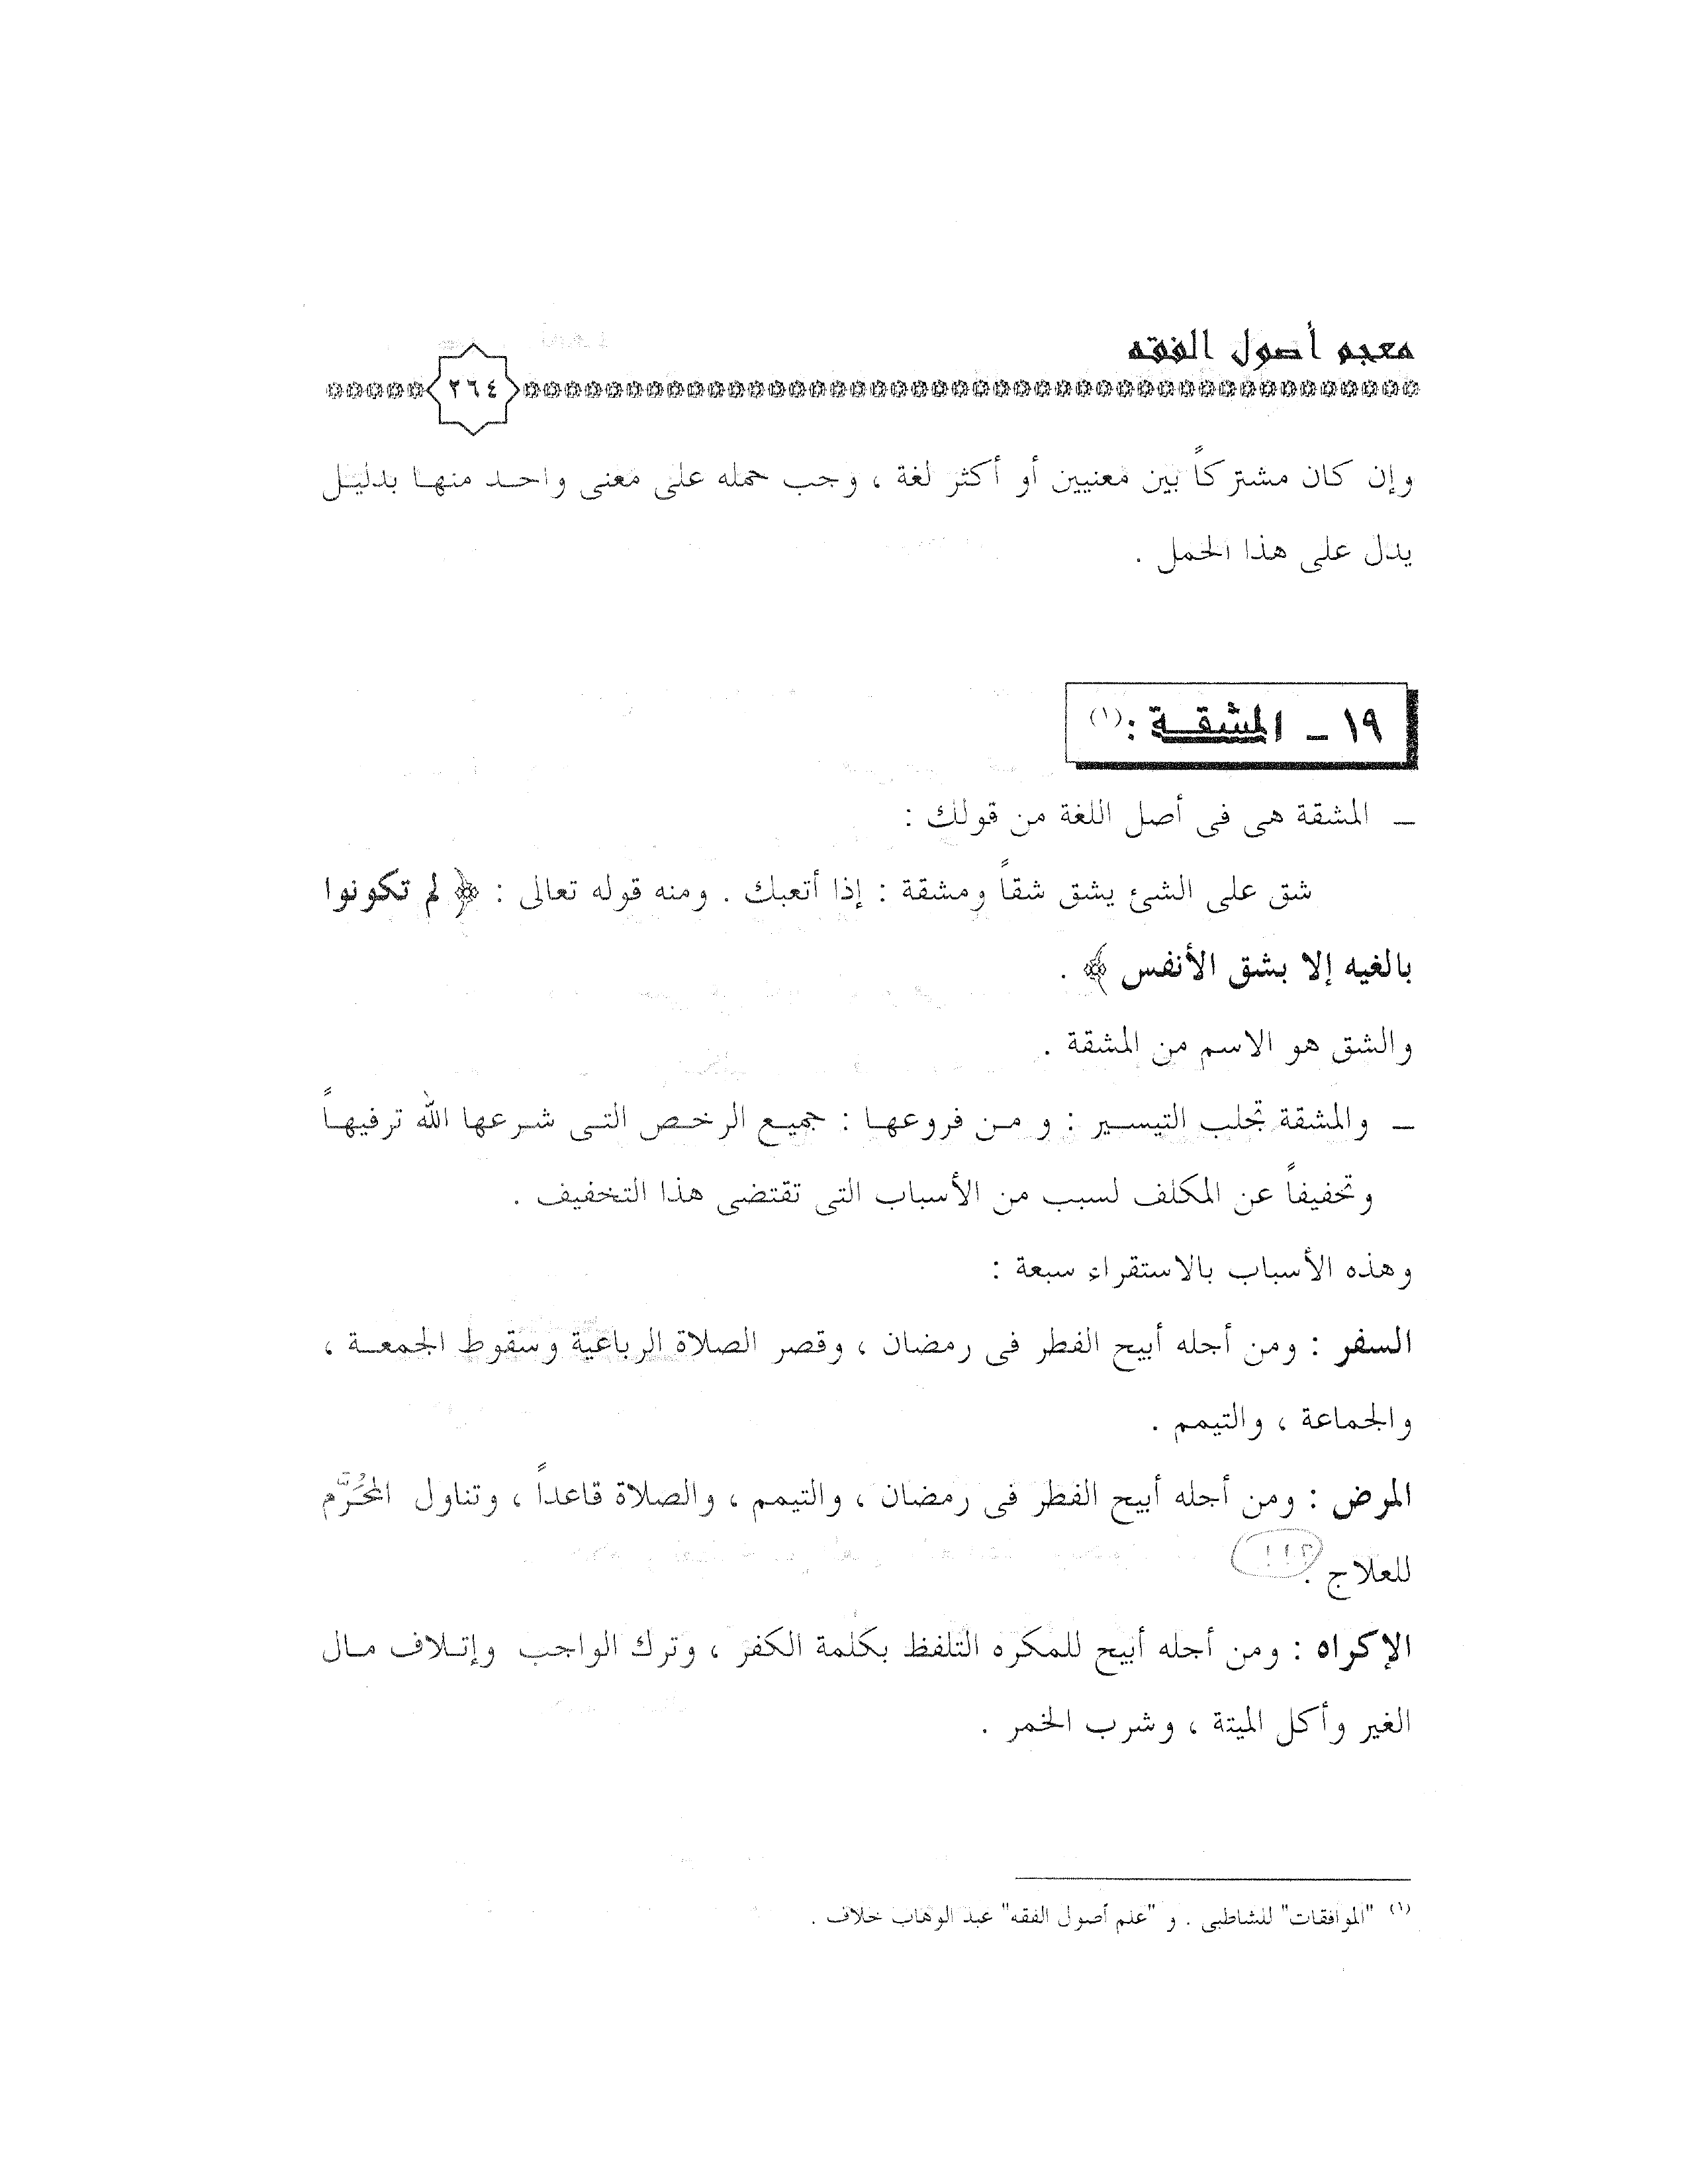 معجم أصول الفقه
٢٦٤
وإن كان مشتركاً بين معنيين أو أكثر لغة ، وجب حمله على معنى واحد منها بدليل
يدل على هذا الحمل .
١٩ - المشقة : (١)
– المشقة هى فى أصل اللغة من قولك :
شق على الشئ يشق شقاً ومشقة : إذا أتعبك . ومنه قوله تعالى : ﴿ لم تكونوا
بالغيه إلا بشق الأنفس ﴾ .
والشق هو الاسم من المشقة .
– والمشقة تجلب التيسير : و من فروعها : جميع الرخص التى شرعها الله ترفيهاً
وتخفيفاً عن المكلف لسبب من الأسباب التى تقتضى هذا التخفيف .
وهذه الأسباب بالاستقراء سبعة :
السفر : ومن أجله أبيح الفطر فى رمضان ، وقصر الصلاة الرباعية وسقوط الجمعة ،
والجماعة ، والتيمم .
المرض : ومن أجله أبيح الفطر فى رمضان ، والتيمم ، والصلاة قاعداً ، وتناول المُحرَّم
للعلاج .
الإكراه : ومن أجله أبيح للمكره التلفظ بكلمة الكفر ، وترك الواجب وإتلاف مال
الغير وأكل الميتة ، وشرب الخمر .
(١) "الموافقات" للشاطبى . و "علم أصول الفقه" عبد الوهاب خلاف .